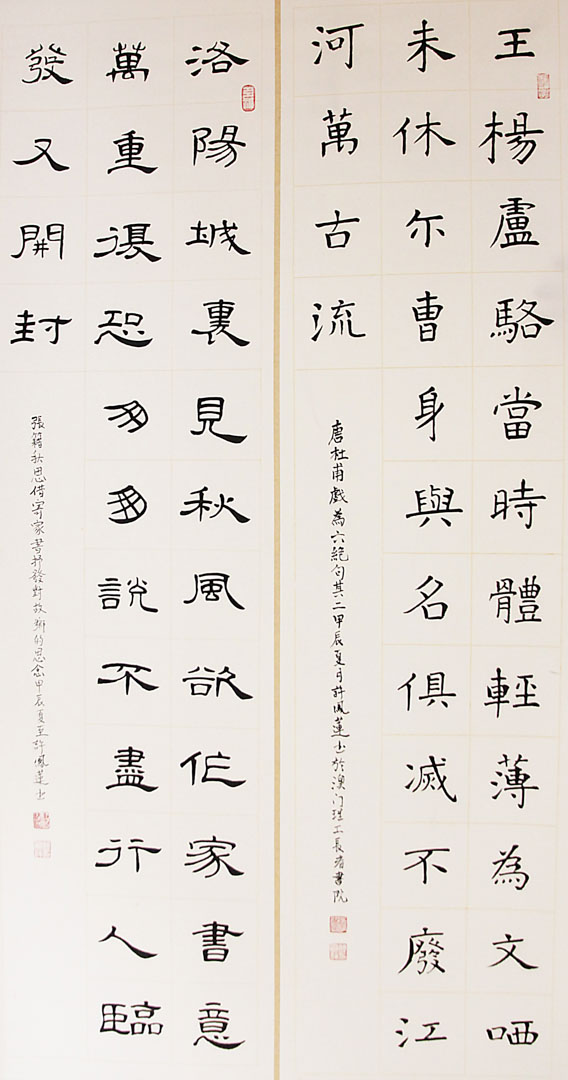 王楊盧駱當時體輕薄為文哂
未休尔曹身與名俱滅不廢江
河萬古流
唐杜甫戲為六絕句其二甲辰夏月許鳳蓮书於澳门理工長者書院
洛陽城裏見秋風欲作家書意
萬重復恐匆匆說不盡行人臨
發又開封
張籍秋思借寄家書抒發對故鄉的思念甲辰夏至許鳳蓮书